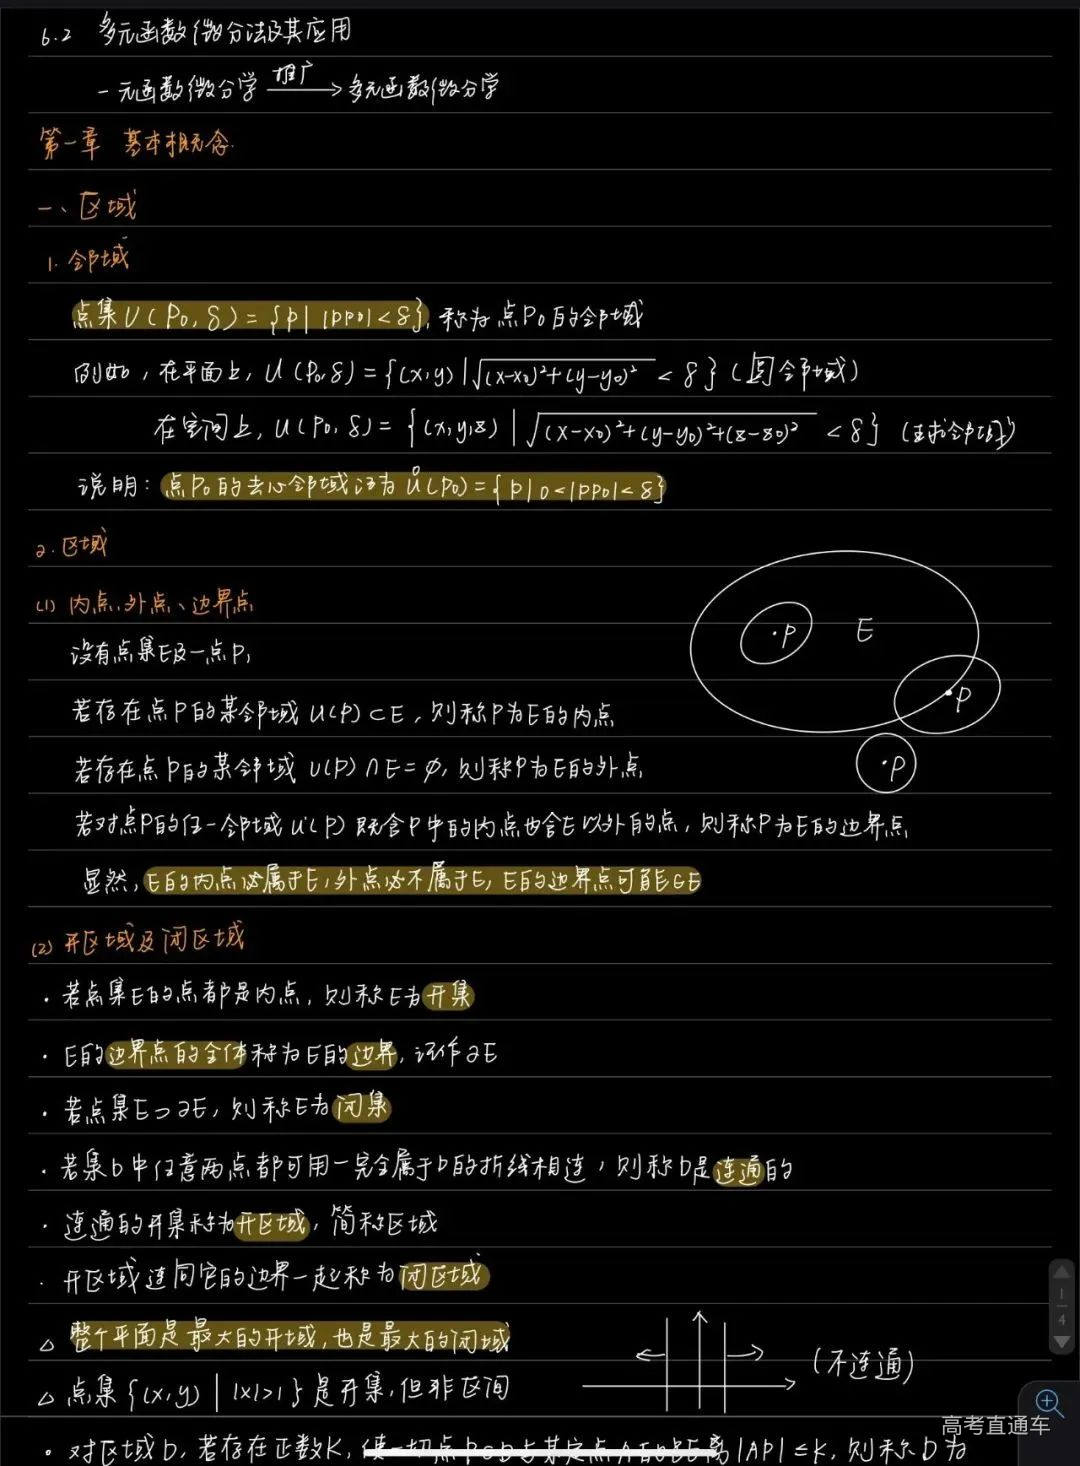 6.2 多元函数微分法及其应用
一元函数微分学 推广→ 多元函数微分学
第一章 基本概念
一、区域
1. 邻域
点集U(P₀,δ)={P| |PP₀|<δ},称为点P₀的邻域
例如,在平面上,U(P₀,δ)={(x,y)|√(x-x₀)²+(y-y₀)² <δ}(圆邻域)
在空间上,U(P₀,δ)={(x,y,z)|√(x-x₀)²+(y-y₀)²+(z-z₀)² <δ}(球邻域)
说明:点P₀的去心邻域记为Ů(P₀)={P|0<|PP₀|<δ}
2.区域
(1) 内点、外点、边界点
设有点集E及一点P,
·P E
·P
·P
若存在点P的某邻域U(P)⊂E,则称P为E的内点
若存在点P的某邻域U(P)∩E=∅,则称P为E的外点
若对点P的任一邻域U(P)既含P中的内点也含E以外的点,则称P为E的边界点
显然,E的内点必属于E,外点必不属于E,E的边界点可能∈E
(2) 开区域及闭区域
·若点集E的点都是内点,则称E为开集
·E的边界点的全体称为E的边界,记作∂E
·若点集E⊃∂E,则称E为闭集
·若集D中任意两点都可用一完全属于D的折线相连,则称D是连通的
·连通的开集称为开区域,简称区域
·开区域连同它的边界一起称为闭区域
△ 整个平面是最大的开域,也是最大的闭域
△ 点集{(x,y)| |x|>1}是开集,但非区间
(不连通)
·对区域D,若存在正数K,使一切点P∈D与某定点A的距离|AP|≤K,则称D为
1
4
高考直通车